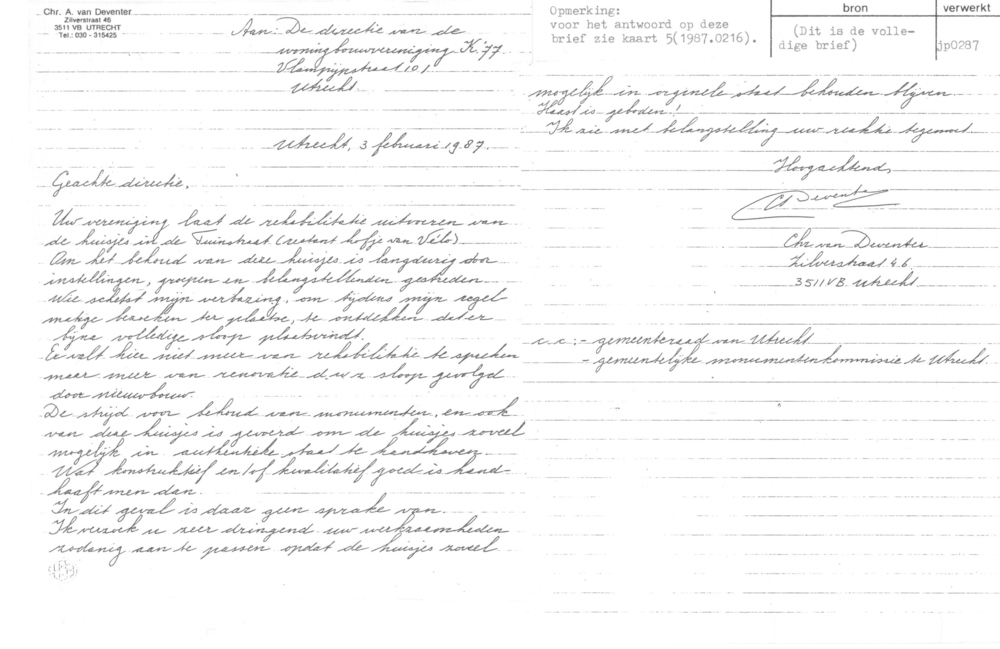 Chr. A. van Deventer
Zilverstraat 46
3511 VB UTRECHT
Tel.: 030 - 315425
Aan: De directie van de
woningbouwvereniging K'77.
Vlampijpstraat 101
Utrecht.
Utrecht, 3 februari 1987.
Geachte directie,
Uw vereniging laat de rehabilitatie uitvoeren van
de huisjes in de Tuinstraat (restant hofje van Vélo).
Om het behoud van deze huisjes is langdurig door
instellingen, groepen en belangstellenden gestreden.
Wie schetst mijn verbazing, om tijdens mijn regel-
matige bezoeken ter plaatse, te ontdekken dat er
bijna volledige sloop plaatsvindt.
Er valt hier niet meer van rehabilitatie te spreken
maar meer van renovatie d.w.z. sloop gevolgd
door nieuwbouw.
De strijd voor behoud van monumenten, en ook
van deze huisjes is gevoerd om de huisjes zoveel
mogelijk in authentieke staat te handhaven.
Wat konstruktief en/of kwalitatief goed is hand-
haaft men dan.
In dit geval is daar geen sprake van.
Ik verzoek u zeer dringend uw werkzaamheden
zodanig aan te passen opdat de huisjes zoveel
Opmerking:
voor het antwoord op deze
brief zie kaart 5(1987.0216).
bron
(Dit is de volle-
dige brief)
verwerkt
jp0287
mogelijk in orginele staat behouden blijven.
Haast is geboden!
Ik zie met belangstelling uw reaktie tegemoet.
Hoogachtend,
CvDeventer
Chr van Deventer
Zilverstraat 46.
3511VB Utrecht.
c.c.: - gemeenteraad van Utrecht.
- gemeentelijke monumentenkommissie te Utrecht.